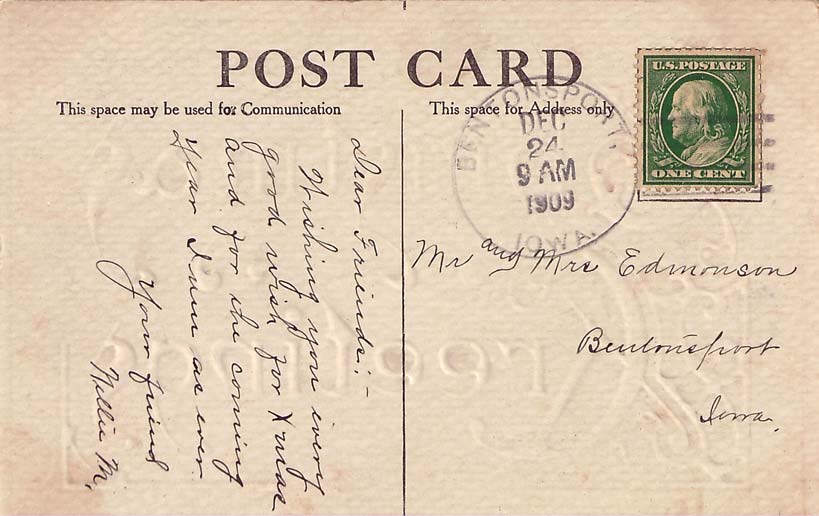 POST CARD
This space may be used for Communication
This space for Address only
U.S. POSTAGE
ONE CENT
BENTONSPORT,
DEC
24
9 AM
1909
IOWA.
Dear Friends:-
Wishing you every
good wish for Xmas
and for the coming
year I am as ever
Your friend
Willie M.
Mr and Mrs Edmonson
Bentonsport
Iowa.